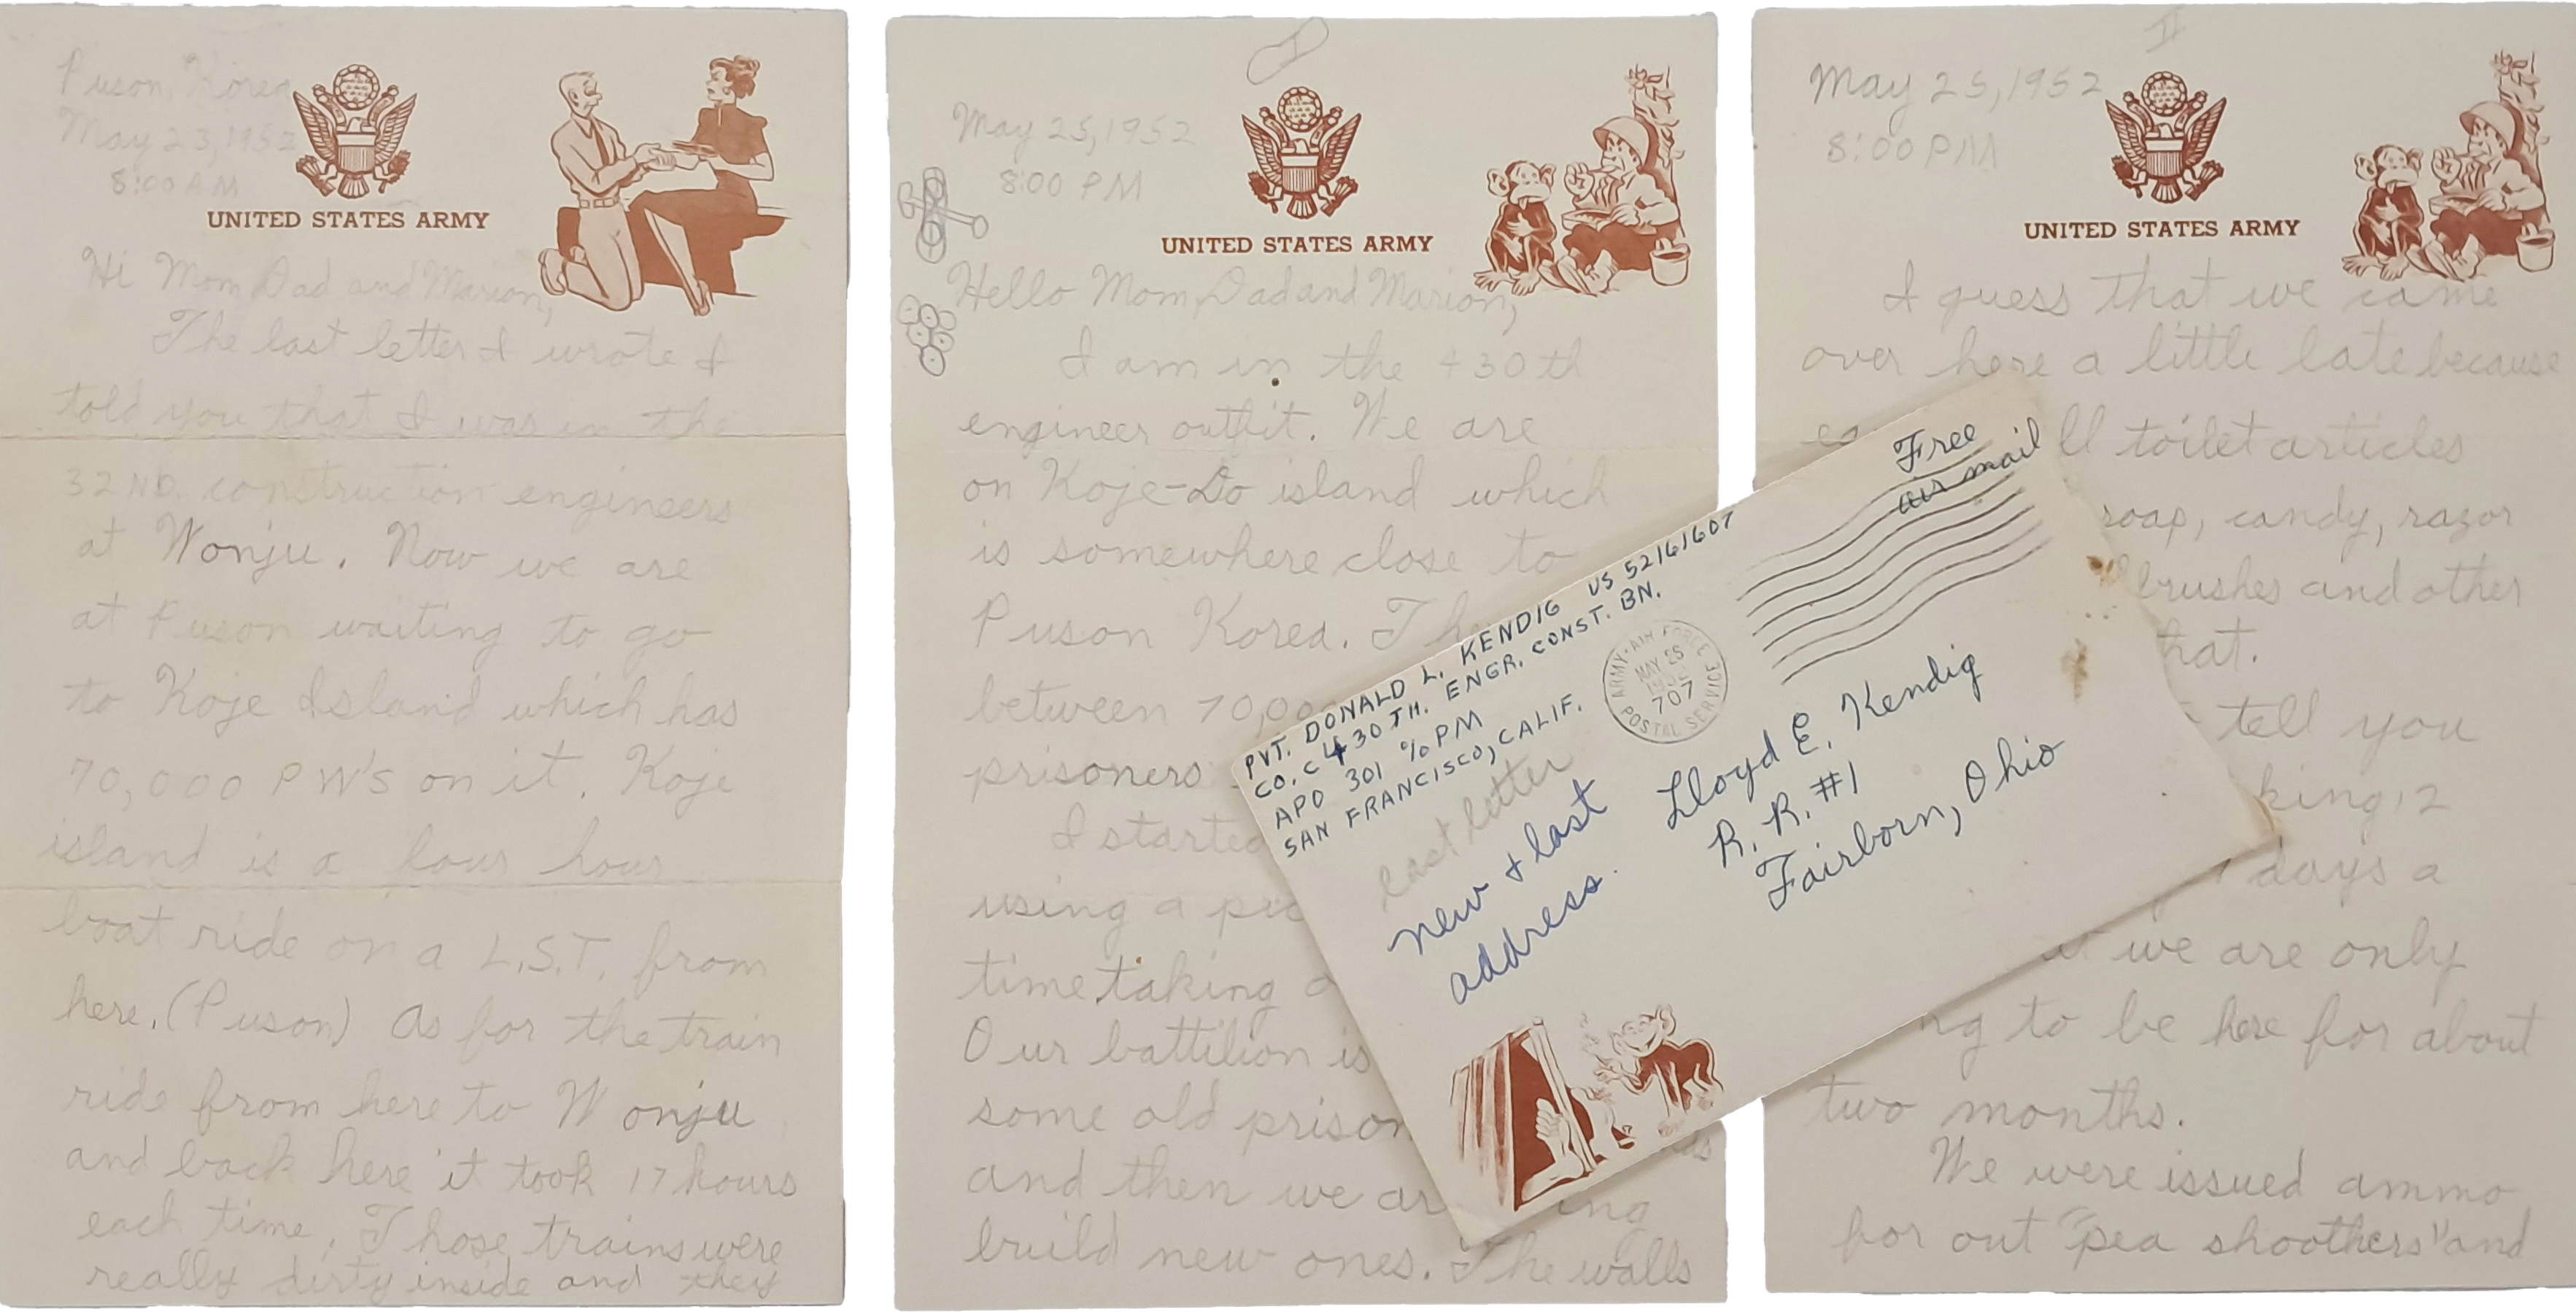 Puson, Korea
May 23, 1952
8:00 AM
UNITED STATES ARMY
Hi Mom, Dad and Marion,
The last letter I wrote I
told you that I was in the
32ND. construction engineers
at Wonju. Now we are
at Puson waiting to go
to Koje Island which has
70,000 PW'S on it. Koje
island is a hour
boat ride on a L.S.T. from
here. (Puson) As for the train
ride from here to Wonju
and back here it took 17 hours
each time. Those trains were
really dirty inside and they
I
May 25, 1952
8:00 PM
UNITED STATES ARMY
Hello Mom, Dad and Marion,
I am in the 430th
engineer outfit. We are
on Koje-Do island which
is somewhere close to
Puson Korea.
between 70,00
prisoners
I started
using a
time taking
Our battilion is
some old prison
and then we
build new ones. The walls
II
May 25, 1952
8:00 PM
UNITED STATES ARMY
I guess that we came
over here a little late because
toilet articles
soap, candy, razor
brushes and other
hat.
tell you
king 12
days a
we are only
ng to be here for about
two months.
We were issued ammo
for out "pea shoothers" and
Free
air mail
PVT. DONALD L. KENDIG US 52161607
CO. C 430TH. ENGR. CONST. BN.
APO 301 % PM
SAN FRANCISCO, CALIF.
ARMY-AIR FORCE
MAY 25
1952
707
POSTAL SERVICE
last letter
new + last
address.
Lloyd E. Kendig
R. R. #1
Fairborn, Ohio